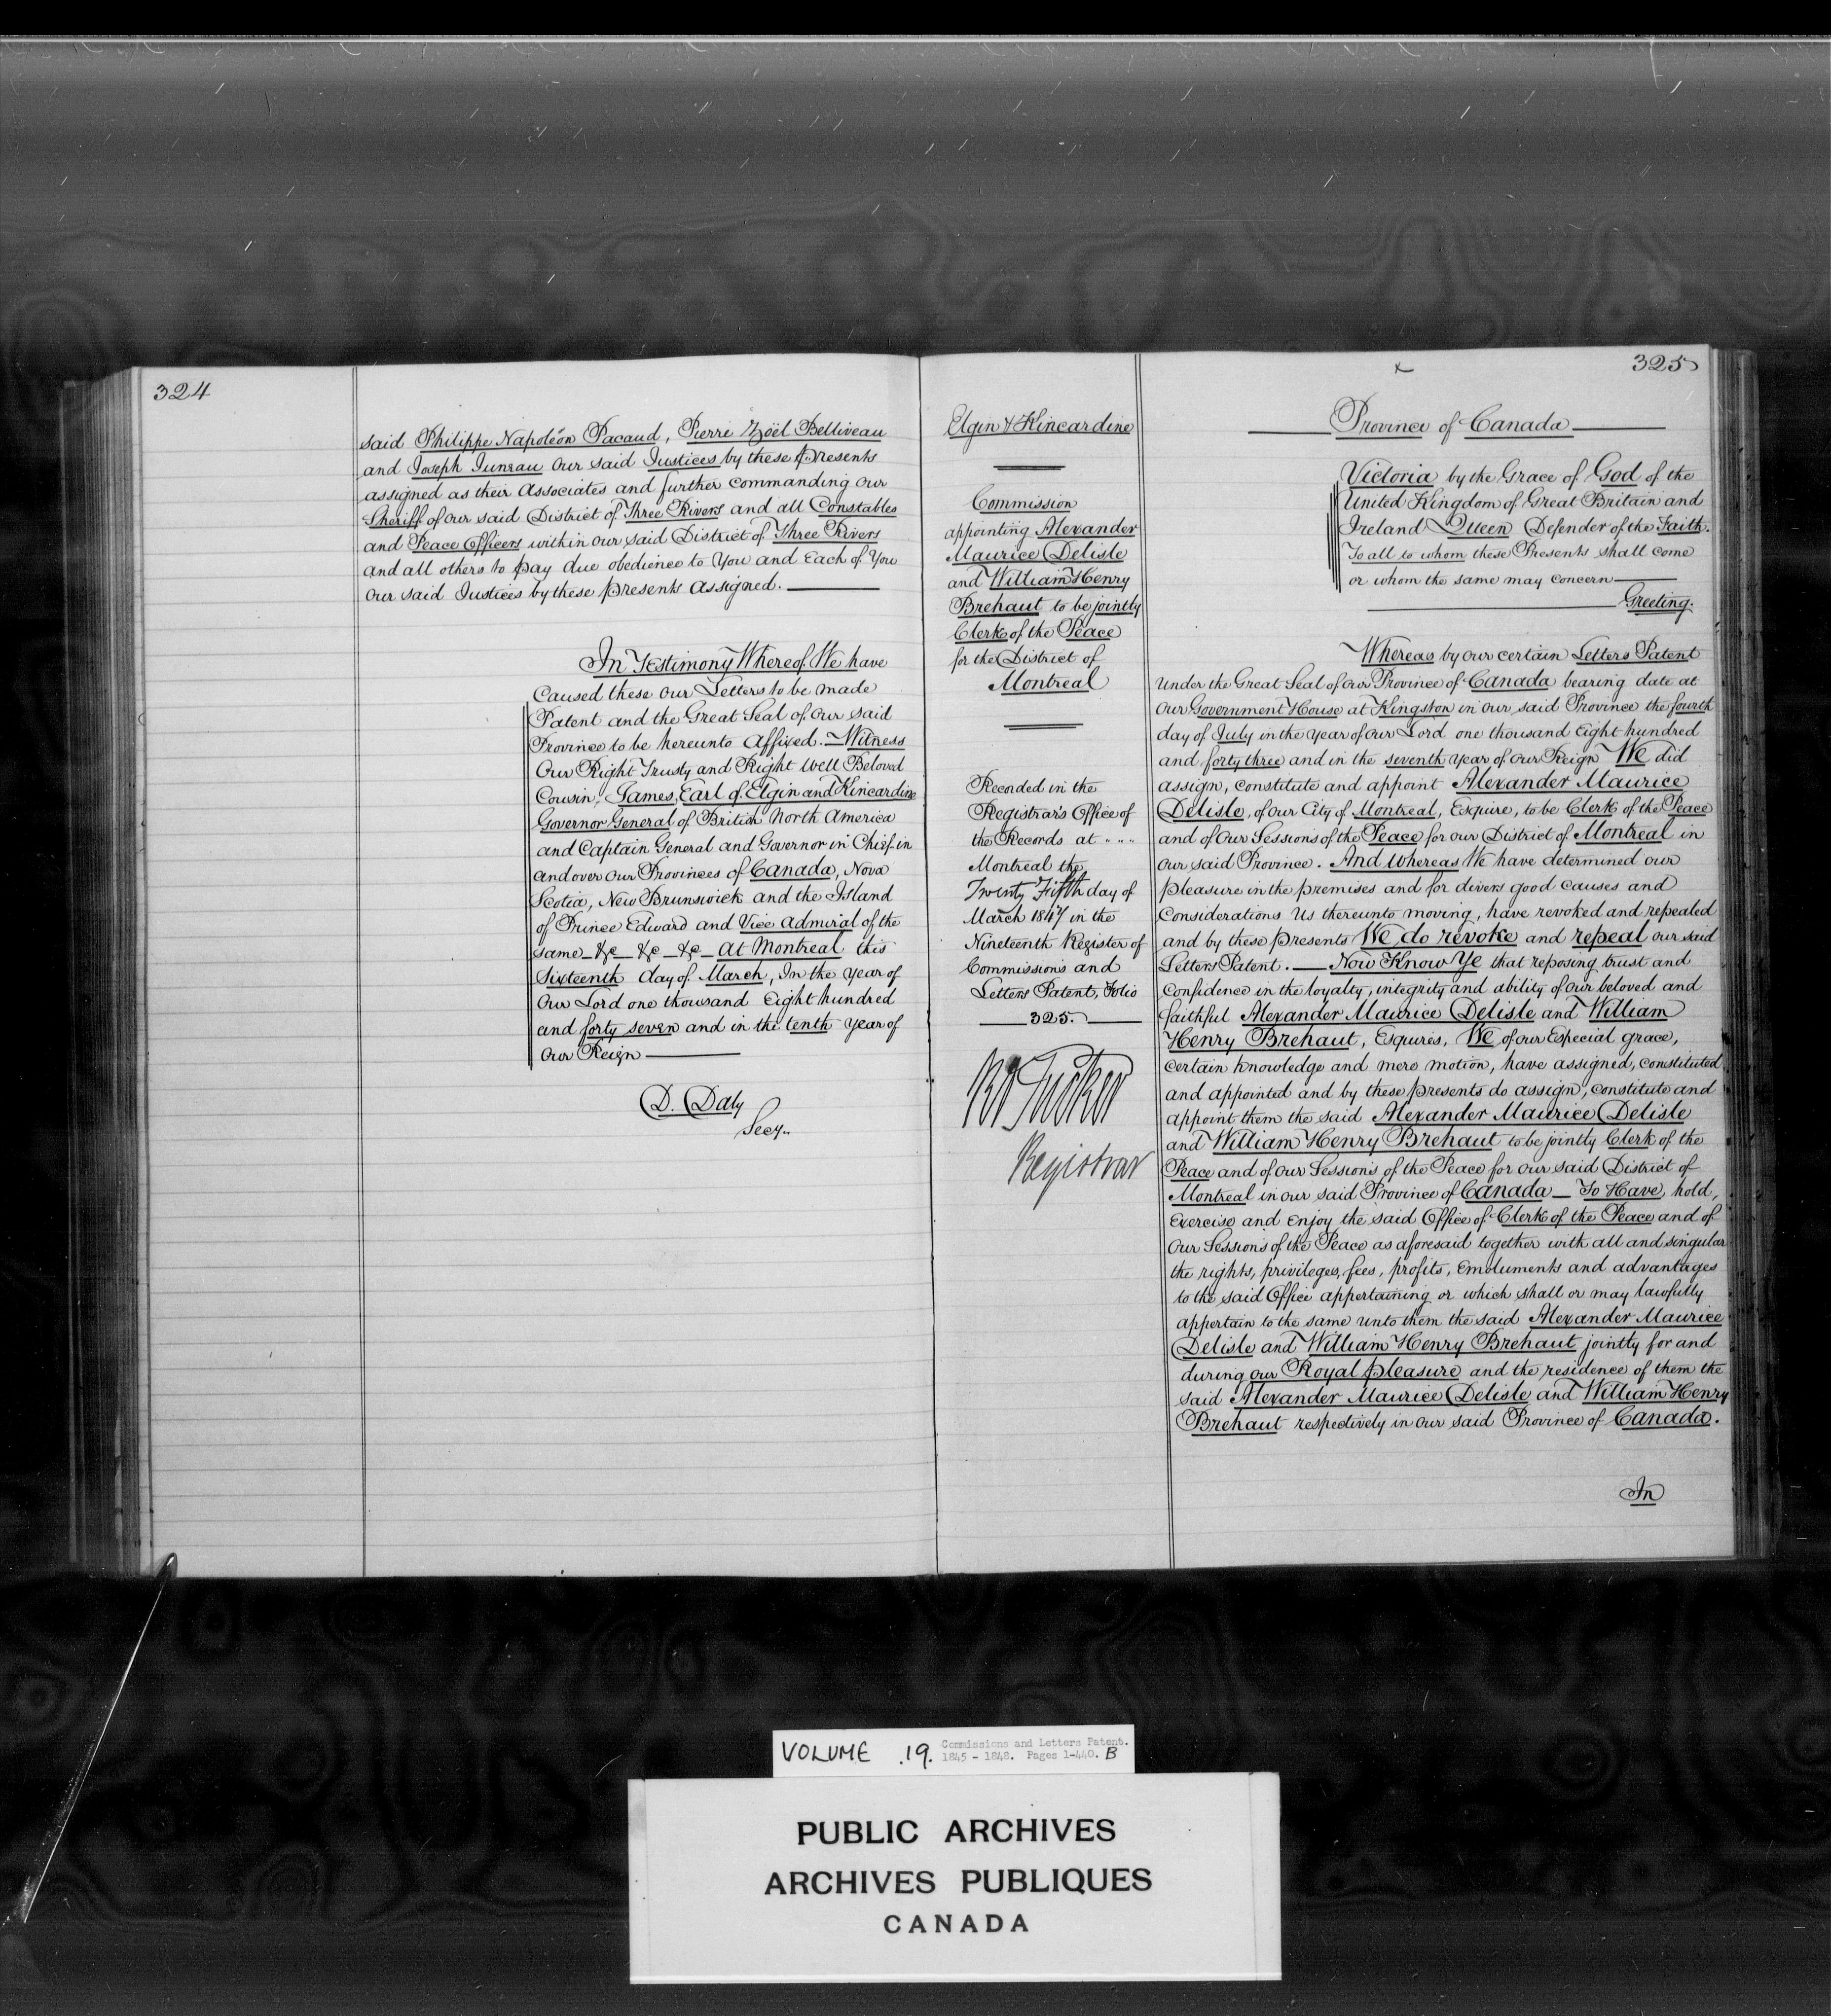 324
said Philippe Napoléon Pacaud, Pierre Zöel Belliveau
and Joseph Juneau our said Justices by these presents
assigned as their Associates and further commanding our
Sheriff of our said District of Three Rivers and all Constables
and Peace Officers within our said District of Three Rivers
and all others to pay due obedience to You and Each of You
our said Justices by these presents assigned.
In Testimony Whereof We have
Caused these our Letters to be made
Patent and the Great Seal of our said
Province to be hereunto Affixed. Witness
Our Right Trusty and Right Well Beloved
Cousin, James, Earl of Elgin and Kincardine
Governor General of British North America
and Captain General and Governor in Chief in
and over our Provinces of Canada, Nova
Scotia, New Brunswick and the Island
of Prince Edward and Vice Admiral of the
same &c &c &c At Montreal this
Sixteenth day of March, In the Year of
Our Lord one thousand Eight hundred
and forty seven and in the tenth Year of
Our Reign
D. Daly
Secy..
Elgin & Kincardine
Commission
appointing Alexander
Maurice Delisle
and William Henry
Brehaut to be jointly
Clerk of the Peace
for the District of
Montreal
Recorded in the
Registrar's Office of
the Records at " " "
Montreal the
Twenty Fifth day of
March 1847 in the
Nineteenth Register of
Commissions and
Letters Patent, Folio
325.
Tucker
Registrar
x
325
Province of Canada
Victoria by the Grace of God of the
United Kingdom of Great Britain and
Ireland Queen Defender of the Faith.
To all to whom these Presents shall come
or whom the same may concern
Greeting.
Whereas by our certain Letters Patent
Under the Great Seal of our Province of Canada bearing date at
our Government House at Kingston in our said Province the fourth
day of July in the Year of our Lord one thousand Eight hundred
and forty three and in the seventh Year of our Reign We did
assign, constitute and appoint Alexander Maurice
Delisle, of our City of Montreal, Esquire, to be Clerk of the Peace
and of our Sessions of the Peace for our District of Montreal in
our said Province. And Whereas We have determined our
pleasure in the premises and for divers good causes and
Considerations Us thereunto moving, have revoked and repealed
and by these presents We do revoke and repeal our said
Letters Patent. Now Know Ye that reposing trust and
Confidence in the loyalty, integrity and ability of our beloved and
faithful Alexander Maurice Delisle and William
Henry Brehaut, Esquires, We of our Especial grace,
certain knowledge and mere motion, have assigned, constituted
and appointed and by these presents do assign, constitute and
appoint them the said Alexander Maurice Delisle
and William Henry Brehaut to be jointly Clerk of the
Peace and of our Sessions of the Peace for our said District of
Montreal in our said Province of Canada To Have, hold,
Exercise and Enjoy the said Office of Clerk of the Peace and of
our Sessions of the Peace as aforesaid together with all and singular
the rights, privileges, fees, profits, Emoluments and advantages
to the said Office appertaining or which shall or may lawfully
appertain to the same unto them the said Alexander Maurice
Delisle and William Henry Brehaut jointly for and
during our Royal pleasure and the residence of them the
said Alexander Maurice Delisle and William Henry
Brehaut respectively in our said Province of Canada.
In
VOLUME .19. Commissions and Letters Patent.
1845 - 1848. Pages 1-440. B
PUBLIC ARCHIVES
ARCHIVES PUBLIQUES
CANADA